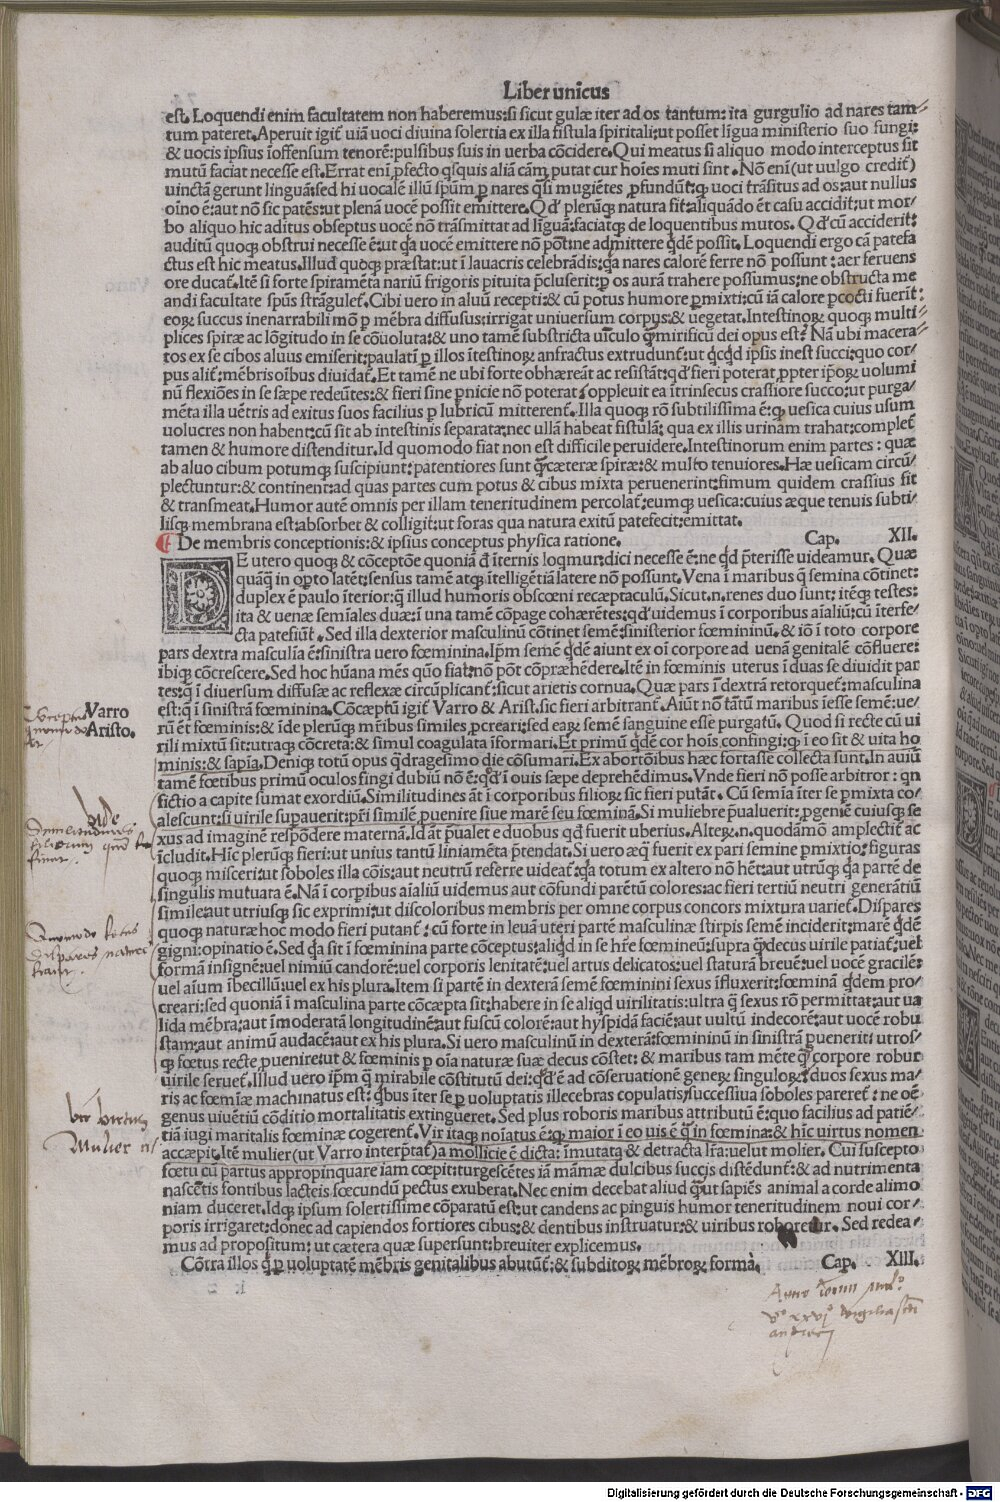 Liber unicus
est. Loquendi enim facultatem non haberemus: si sicut gulæ iter ad os tantum: ita gurgulio ad nares tam⸗
tum pateret. Aperuit igit̃ uiã uoci diuina solertia ex illa fistula spiritali: ut posset lĩgua ministerio suo fungi:
& uocis ipsius ĩoffensum tenorẽ: pulsibus suis in uerba cõcidere. Qui meatus si aliquo modo interceptus sit
mutũ faciat necesse est. Errat enĩ ꝓfecto q̃squis aliã cãm putat cur hoĩes muti sint. Nõ enĩ (ut uulgo credit̃)
uinctã gerunt linguã: sed hi uocalẽ illũ spũm ꝑ nares q̃si mugiẽtes ꝓfundũt: qꝫ uoci trãsitus ad os: aut nullus
oĩno ẽ: aut nõ sic patẽs: ut plenã uocẽ possit emittere. Qd' plerũqꝫ natura fit: aliquãdo ẽt casu accidit: ut mor⸗
bo aliquo hic aditus obseptus uocẽ nõ trãsmittat ad lĩguã: faciatqꝫ de loquentibus mutos. Qd' cũ acciderit:
auditũ quoqꝫ obstrui necesse ẽ: ut q̃a uocẽ emittere nõ põt: ne admittere q̃dẽ possit. Loquendi ergo cã patefa
ctus est hic meatus. Illud quoqꝫ præstat: ut ĩ lauacris celebrãdis: q̃a nares calorẽ ferre nõ possunt: aer feruens
ore ducat̃. Itẽ si forte spiramẽta nariũ frigoris pituita p̃cluserit: ꝑ os aurã trahere possimus: ne obstructa me
andi facultate spũs strãgulet̃. Cibi uero in aluũ recepti: & cũ potus humore ꝑmixti: cũ iã calore ꝑcocti fuerĩt:
eoꝝ succus inenarrabili mõ ꝑ mẽbra diffusus: irrigat uniuersum corpus: & uegetat. Intestinoꝝ quoqꝫ multi⸗
plices spiræ ac lõgitudo in se cõuoluta: & uno tamẽ substricta uĩculo q̃ mirificũ dei opus est? Nã ubi macera⸗
tos ex se cibos aluus emiserit: paulatĩ ꝑ illos ĩtestinoꝝ anfractus extrudunt̃: ut q̃cq̃d ipsis inest succi: quo cor⸗
pus alit̃: mẽbris oĩbus diuidat̃. Et tamẽ ne ubi forte obhæreãt ac resistãt: qd' fieri poterat ꝓpter ip̃oꝝ uolumi
nũ flexiões in se sæpe redeũtes: & fieri sine ꝑnicie nõ poterat: oppleuit ea ĩtrinsecus crassiore succo: ut purga⸗
mẽta illa uẽtris ad exitus suos facilius ꝑ lubricũ mitterent̃. Illa quoqꝫ rõ subtilissima ẽ: qꝫ uesica cuius usum
uolucres non habent: cũ sit ab intestinis separata: nec ullã habeat fistulã: qua ex illis urinam trahat: complet̃
tamen & humore distenditur. Id quomodo fiat non est difficile peruidere. Intestinorum enim partes: quæ
ab aluo cibum potumqꝫ suscipiunt: patentiores sunt q̃ cæteræ spiræ: & multo tenuiores. Hæ uesicam circũ⸗
plectuntur: & continent: ad quas partes cum potus & cibus mixta peruenerint: fimum quidem crassius fit
& transmeat. Humor autẽ omnis per illam teneritudinem percolat̃: eumqꝫ uesica: cuius æque tenuis subti⸗
lisqꝫ membrana est: absorbet & colligit: ut foras qua natura exitũ patefecit: emittat.
De membris conceptionis: & ipsius conceptus physica ratione. Cap. XII.
DE utero quoqꝫ & cõceptõe quoniã đ ĩternis loq̃mur: dici necesse ẽ: ne q̃d p̃terisse uideamur. Quæ
quãq̃ in opto latẽt: sensus tamẽ atqꝫ ĩtelligẽtiã latere nõ possunt. Vena ĩ maribus q̃ semina cõtinet:
duplex ẽ paulo ĩterior: q̃ illud humoris obscœni recæptaculũ. Sicut.n.renes duo sunt: itẽqꝫ testes:
ita & uenæ semĩales duæ: ĩ una tamẽ cõpage cohærẽtes: qd' uidemus ĩ corporibus aĩaliũ: cũ ĩterfe⸗
cta patefiũt. Sed illa dexterior masculinũ cõtinet semẽ: sinisterior fœmininũ. & iõ ĩ toto corpore
pars dextra masculĩa ẽ: sinistra uero fœminina. Ip̃m semẽ q̃dẽ aiunt ex oĩ corpore ad uenã genitalẽ cõfluere:
ibiqꝫ cõcrescere. Sed hoc hũana mẽs quo fiat: nõ põt cõpræhẽdere. Itẽ in fœminis uterus ĩ duas se diuidit par
tes: q̃ ĩ diuersum diffusæ ac reflexæ circũplicant̃: sicut arietis cornua. Quæ pars ĩ dextrã retorquet̃: masculina
est: q̃ ĩ sinistrã fœminina. Cõcæptũ igit̃ Varro & Arist. sic fieri arbitrant̃. Aiũt nõ tãtũ maribus ĩesse semẽ: ue⸗
rũ ẽt fœminis: & ĩde plerũqꝫ mr̃ibus similes ꝓcreari: sed eaꝝ semẽ sanguine esse purgatũ. Quod si recte cũ ui
rili mixtũ sit: utraqꝫ cõcreta: & simul coagulata ĩformari. Et primũ q̃dẽ cor hoĩs confingi: qꝫ ĩ eo sit & uita ho
minis: & sapĩa. Deniqꝫ totũ opus q̃dragesimo die cõsumari. Ex abortõibus hæc fortasse collecta sunt. In auiũ
tamẽ fœtibus primũ oculos fingi dubiũ nõ ẽ: qd' ĩ ouis sæpe deprehẽdimus. Vnde fieri nõ posse arbitror: qn
fictio a capite sumat exordiũ. Similitudines ãt ĩ corporibus filioꝝ sic fieri putãt. Cũ semĩa ĩter se ꝑmixta co⸗
alescunt: si uirile supauerit: pr̃i similẽ ꝓuenire siue marẽ seu fœminã. Si muliebre p̃ualuerit: ꝓgeniẽ cuiusqꝫ se
xus ad imaginẽ respõdere maternã. Id ãt p̃ualet e duobus qd' fuerit uberius. Alteꝝ.n.quodãmõ amplectit̃ ac
ĩcludit. Hĩc plerũqꝫ fieri: ut unius tantũ liniamẽta p̃tendat. Si uero æq̃ fuerit ex pari semine ꝑmixtio: figuras
quoqꝫ misceri: ut soboles illa cõis: aut neutrũ referre uideat̃: q̃a totum ex altero nõ hẽt: aut utrũqꝫ q̃a parte de
singulis mutuata ẽ. Nã ĩ corꝑibus aĩaliũ uidemus aut cõfundi parẽtũ colores: ac fieri tertiũ neutri generãtiũ
simile: aut utriusqꝫ sic exprimi: ut discoloribus membris per omne corpus concors mixtura uariet̃. Dispares
quoqꝫ naturæ hoc modo fieri putant̃: cũ forte in leuã uteri partẽ masculinæ stirpis semẽ inciderit: marẽ q̃dẽ
gigni: opinatio ẽ. Sed q̃a sit ĩ fœminina parte cõceptus: aliq̃d in se hr̃e fœmineũ: supra q̃ decus uirile patiat̃: uel
formã insignẽ: uel nimiũ candorẽ: uel corporis lenitatẽ: uel artus delicatos: uel staturã breuẽ: uel uocẽ gracilẽ:
uel aĩum ĩbecillũ: uel ex his plura. Item si partẽ in dexterã semẽ fœminini sexus ĩfluxerit: fœminã q̃dem pro⸗
creari: sed quoniã ĩ masculina parte cõcæpta sit: habere in se aliq̃d uirilitatis: ultra q̃ sexus rõ permittat: aut ua
lida mẽbra: aut ĩmoderatã longitudinẽ: aut fuscũ colorẽ: aut hyspidã faciẽ: aut uultũ indecorẽ: aut uocẽ robu
stam: aut animũ audacẽ: aut ex his plura. Si uero masculinũ in dexterã: fœmininũ in sinistrã ꝑuenerit: utros⸗
qꝫ fœtus recte ꝓuenire: ut & fœminis ꝑ oĩa naturæ suæ decus cõstet: & maribus tam mẽte q̃ corpore robur
uirile seruet̃. Illud uero ip̃m q̃ mirabile cõstitutũ dei: qd' ẽ ad cõseruationẽ geneꝝ singuloꝝ: duos sexus ma⸗
ris ac fœmĩæ machinatus est: q̃bus ĩter se ꝑ uoluptatis illecebras copulatis: successiua soboles pareret̃: ne oẽ
genus uiuẽtiũ cõditio mortalitatis extingueret. Sed plus roboris maribus attributũ ẽ: quo facilius ad patiẽ⸗
tiã iugi maritalis fœminæ cogerent̃. Vir itaqꝫ noĩatus ẽ: qꝫ maior ĩ eo uis ẽ q̃ in fœmina: & hĩc uirtus nomen
accæpit. Itẽ mulier (ut Varro interp̃tat̃) a mollicie ẽ dicta: ĩmutata & detracta lr̃a: uelut molier. Cui suscepto
fœtu cũ partus appropinquare iam cœpit: turgescẽtes iã mãmæ dulcibus succis distẽdunt̃: & ad nutrimenta
nascẽtis fontibus lacteis sœcundũ pectus exuberat. Nec enim decebat aliud q̃ ut sapiẽs animal a corde alimo
niam duceret. Idqꝫ ipsum solertissime cõparatũ est: ut candens ac pinguis humor teneritudinem noui cor⸗
poris irrigaret: donec ad capiendos fortiores cibus: & dentibus instruatur: & uiribus roboretur. Sed redea⸗
mus ad propositum: ut cætera quæ supersunt: breuiter explicemus.
Cõtra illos q̃ ꝑ uoluptatẽ mẽbris genitalibus abutũt̃: & subditoꝝ mẽbroꝝ formã. Cap. XIII.
Varro
Aristo.
vide
Similitudines
filiorum
Quomodo fetus
dispares
Mulier
Anno
Digitalisierung gefördert durch die Deutsche Forschungsgemeinschaft - DFG